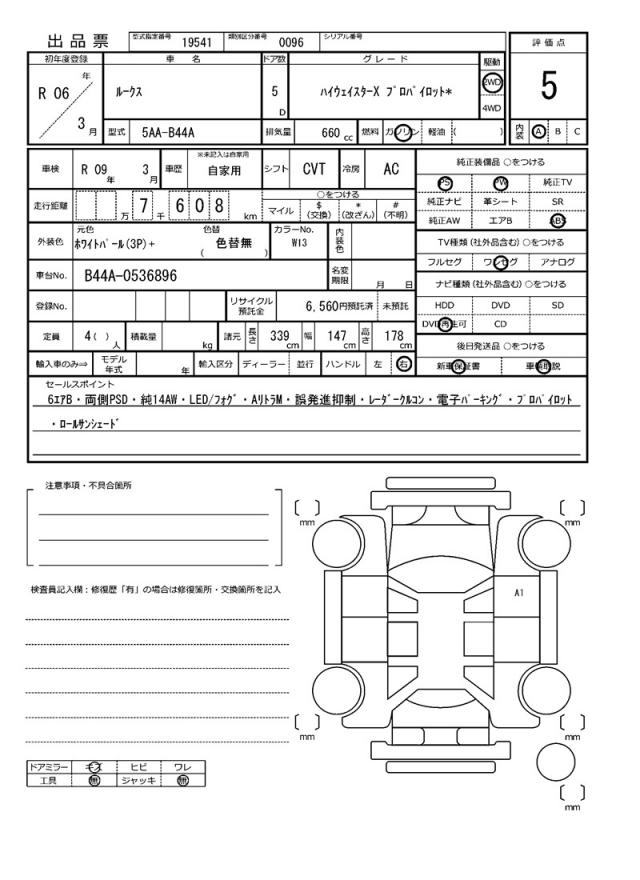 出品票 型式指定番号 19541 類別区分番号 0096 シリアル番号
初年度登録 車名 ドア数 グレード 駆動 評価点
R 06 年 3 月 ルークス 5 D ハイウェイスターX プロパイロット* 2WD 4WD 5
型式 5AA-B44A 排気量 660 cc 燃料 ガソリン 軽油 ( ) 内装 A B C
車検 R 09 年 3 月 車歴 ※未記入は自家用 自家用 シフト CVT 冷房 AC 純正装備品 ○をつける
PS PW 純正TV
走行距離 万 7 千 6 0 8 km ○をつける マイル $ (交換) * (改ざん) # (不明) 純正ナビ 革シート SR
純正AW エアB ABS
外装色 元色 ホワイトパール(3P)+ 色替 ( 色替無 ) カラーNo. W13 内装色 TV種類 (社外品含む) ○をつける
フルセグ ワンセグ アナログ
車台No. B44A-0536896 名変期限 月 日 ナビ種類 (社外品含む) ○をつける
登録No. リサイクル預託金 6,560円預託済 未預託 HDD DVD SD
DVD再生可 CD
定員 4( ) 人 積載量 kg 諸元 長さ 339 cm 幅 147 cm 高さ 178 cm 後日発送品 ○をつける
輸入車のみ⇒ モデル年式 年 輸入区分 ディーラー 並行 ハンドル 左 右 新車保証書 車輌取説
セールスポイント
6エアB・両側PSD・純14AW・LED/フォグ・AリトラM・誤発進抑制・レーダークルコン・電子パーキング・プロパイロット
・ロールサンシェード
注意事項・不具合箇所
mm mm
検査員記入欄：修復歴「有」の場合は修復箇所・交換箇所を記入
A1
mm mm
ドアミラー キズ ヒビ ワレ
工具 無 ジャッキ 無
mm